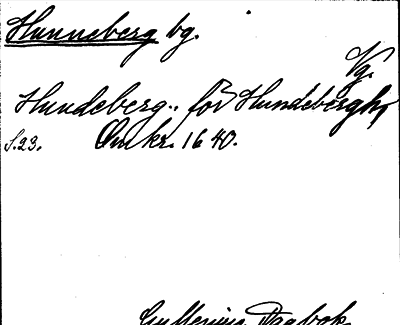 Hunneberg bg.
Vg.
Hundeberg.. för Hundebergh,
S.23. Omkr. 1640.
Gyllenius Dagbok